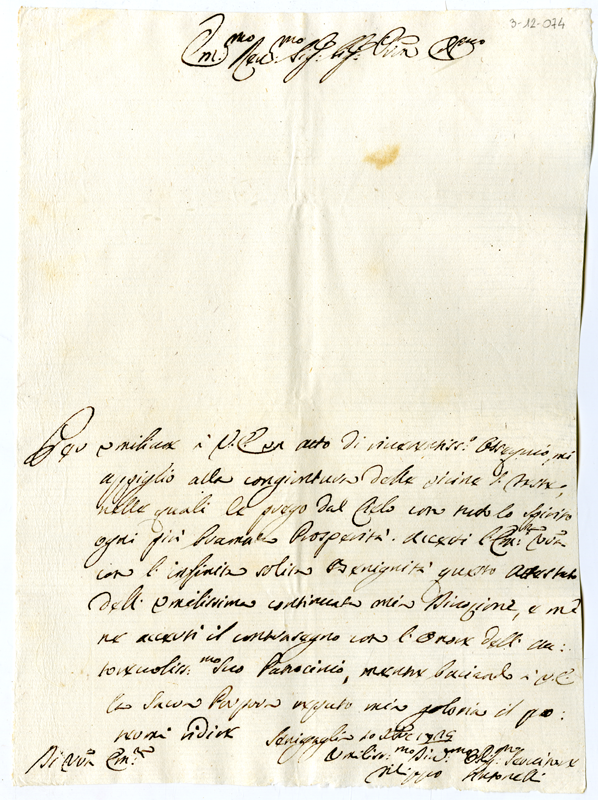 3-12-074
Em.mo Rev.mo Sig.r Sig.r P̃rone
Per umiliare à V.E. un atto di riverentiss.o Ossequio, mi
appiglio alla congiuntura delle vicine S. Feste,
nelle quali le prego dal Cielo con tutto lo Spirito
ogni più bramata Prosperità. Accetti l'Em.za V̄ra
con l'infinita solita Benignità questo attestato
dell'umilissima continuata mia Divozione, e m'
ne accerti il contrasegno con l'onore dell'au:
torevoliss:mo Suo Patrocinio, mentre baciando à V.E.
la Sacra Porpora reputo mia gloria il po:
termi ridire
Senigaglia 10
Di V̄ra Em.za
Umiliss:mo Div.mo Obl.mo Servitore
Filippo Antonelli